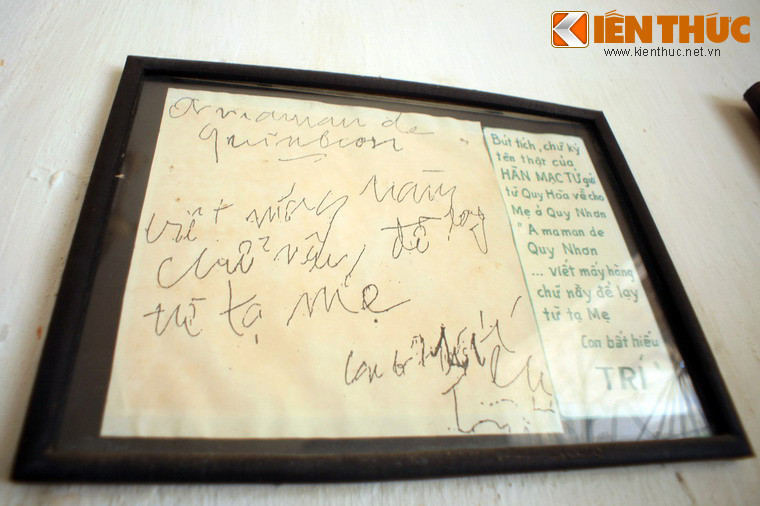 KIẾN THỨC
www.kienthuc.net.vn
A maman de
Quinhon
viết mấy hàng
chữ nầy để lạy
từ tạ mẹ
Con bất hiếu
Bút tích, chữ ký
tên thật của
HÀN MẠC TỬ gửi
từ Quy Hòa về cho
Mẹ ở Quy Nhơn
"A maman de
Quy Nhơn
... viết mấy hàng
chữ nầy để lạy
từ tạ Mẹ
Con bất hiếu
TRÍ